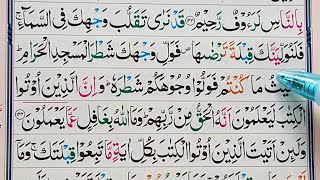 بِالنَّاسِ لَرَءُوۡفٌ رَّحِيۡمٌ ﴿۱۴۳﴾ قَدۡ نَرٰى تَقَلُّبَ وَجۡهِكَ فِى السَّمَآءِ‌ۚ
فَلَـنُوَلِّيَنَّكَ قِبۡلَةً تَرۡضٰٮهَا‌ ۪ فَوَلِّ وَجۡهَكَ شَطۡرَ الۡمَسۡجِدِ الۡحَـرَامِؕ
مَا كُنۡتُمۡ فَوَلُّوۡا وُجُوۡهَكُمۡ شَطۡرَهٗ ؕ وَاِنَّ الَّذِيۡنَ اُوۡتُوا
الۡكِتٰبَ لَيَـعۡلَمُوۡنَ اَنَّهُ الۡحَـقُّ مِنۡ رَّبِّهِمۡ‌ؕ وَمَا اللّٰهُ بِغَافِلٍ عَمَّا يَعۡمَلُوۡنَ ﴿۱۴۴﴾
وَلَٮِٕنۡ اَ تَيۡتَ الَّذِيۡنَ اُوۡتُوا الۡكِتٰبَ بِكُلِّ اٰيَةٍ مَّا تَبِعُوۡا قِبۡلَتَكَ‌ۚ وَمَآ